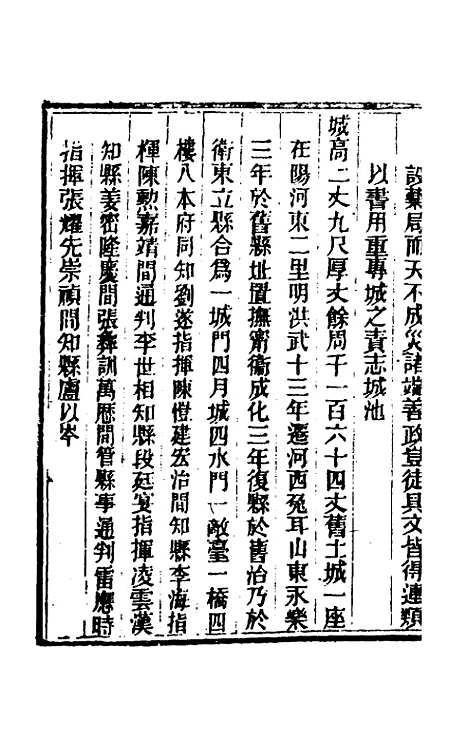 設藥局而天不成災諸端善政豈徒具文皆得連類
以書用重專城之責志城池
城高二丈九尺厚丈餘周千一百六十四丈舊土城一座
在陽河東二里明洪武十三年遷河西兔耳山東永樂
三年於舊縣址置撫甯衞成化三年復縣於舊治乃於
衛東立縣合爲一城門四月城四水門一敵臺一橋四
樓八本府同知劉遂指揮陳愷建宏治間知縣李海指
揮陳勲嘉靖間通判李世相知縣段廷宴指揮凌雲漢
知縣姜密隆慶間張彝訓萬歴間管縣事通判雷應時
指揮張耀先崇禎間知縣盧以岑